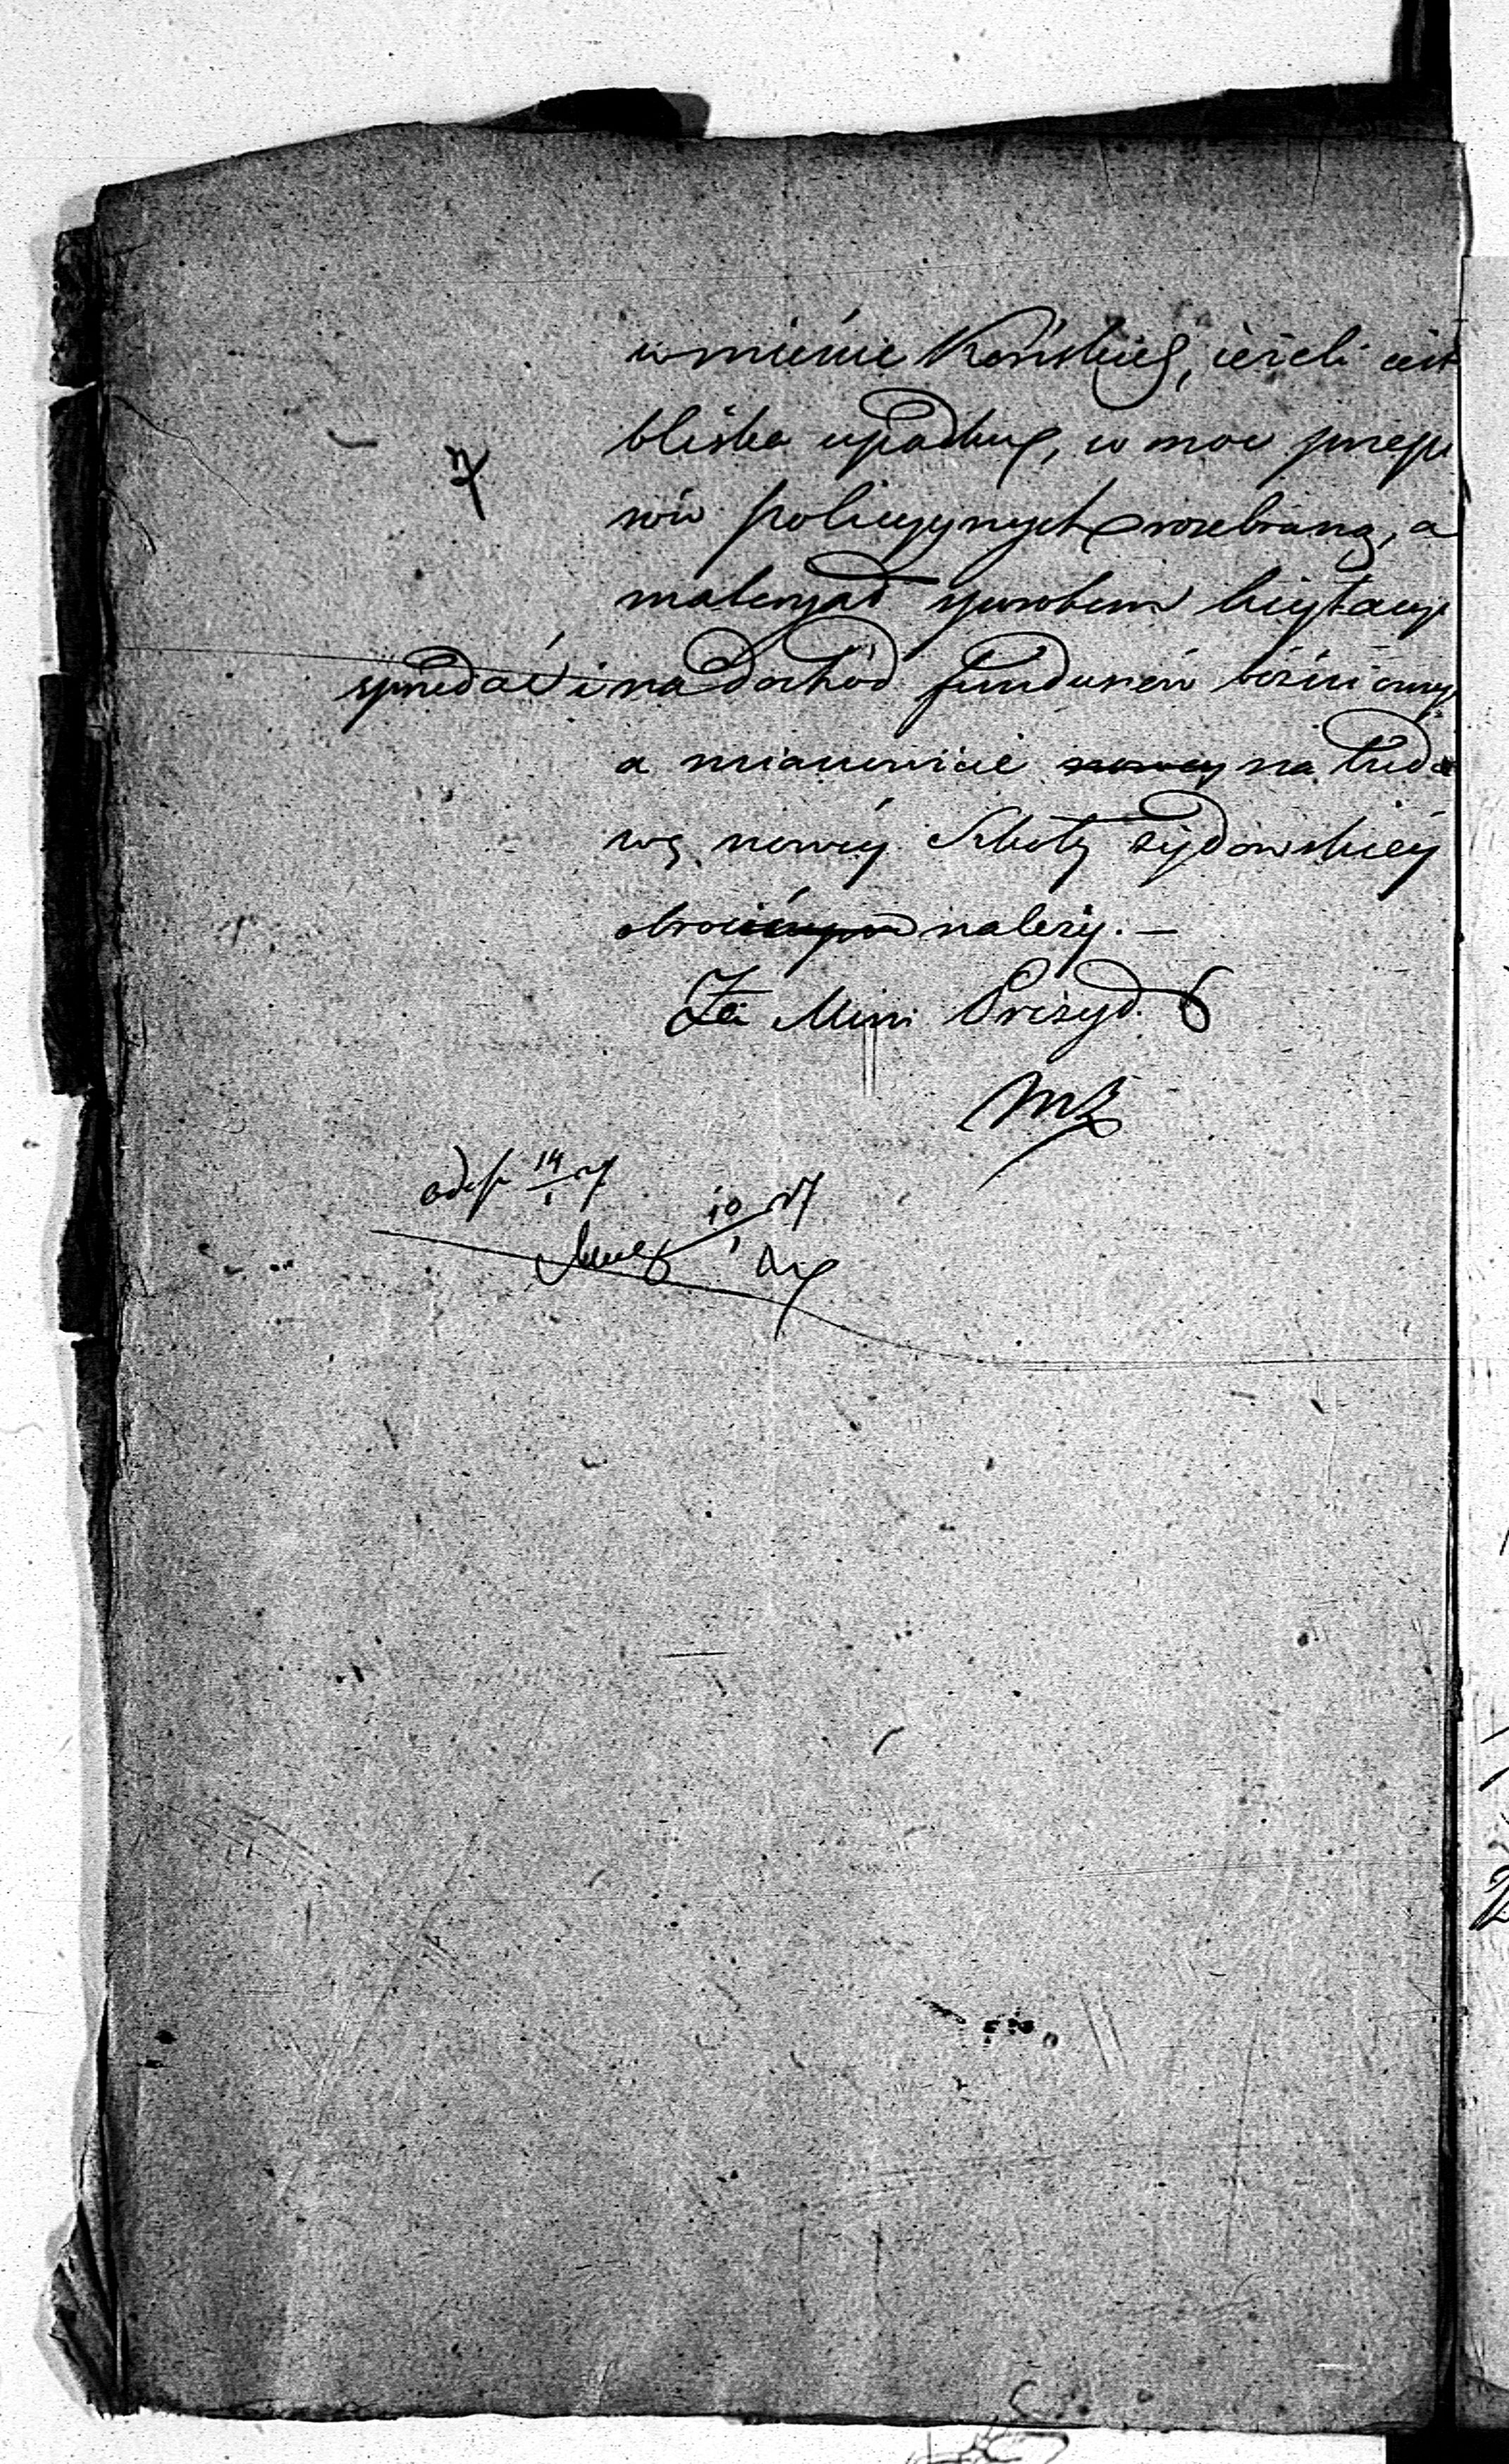 w mieście Końskich, ieżeli iest
bliska upadku, w moc przepi
sów policyynych rozebrana, a
materyał sposobem licytacyi
sprzedać i na dochód funduszów bóżniczny
a mianowicie nowey na budo
wę nowéy Szkoły żydowskiéy
obrócić należy. —
Za Mini Prezyd.
odesł 14/1 27
10/1 27